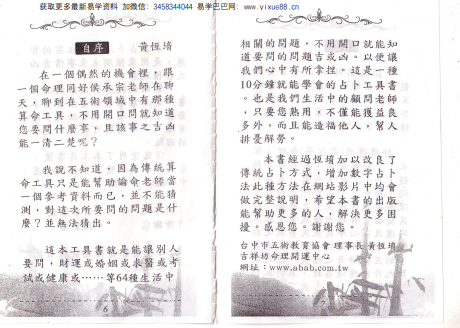 获取更多最新易学资料 加微信: 3458344044 易学巴巴网: www.yixue88.cn
自序 黃恆堉
在一個偶然的機會裡,跟
一個命理同好侯承宗老師在聊
天,聊到在五術領域中有那種
算命工具,不用開口問就知道
您要問什麼事,且該事之吉凶
能一清二楚呢?
我說不知道,因為傳統算
命工具只是能幫助論命老師當
一個參考資料而已,並不能猜
測,對這次所要問的問題是什
麼?並無法猜出。
這本工具書就是能讓別人
要問,財運或婚姻或求醫或考
試或健康或……等64種生活中
6
相關的問題,不用開口就能知
道要問的問題吉或凶。以便讓
我們心中有所拿捏。這是一種
10分鐘就能學會的占卜工具書
。也是我們生活中的顧問老師
,只要您熟用,不僅能獲益良
多外,而且能造福他人,幫人
排憂解勞。
本書經過恆堉加以改良了
傳統占卜方式,增加數字占卜
法此種方法在網站影片中均會
做完整說明,希望本書的出版
能幫助更多的人,解決更多困
擾。感恩您。謝謝您。
台中市五術教育協會 理事長 黃恆堉
吉祥坊命理開運中心
網址:www.abab.com.tw
7